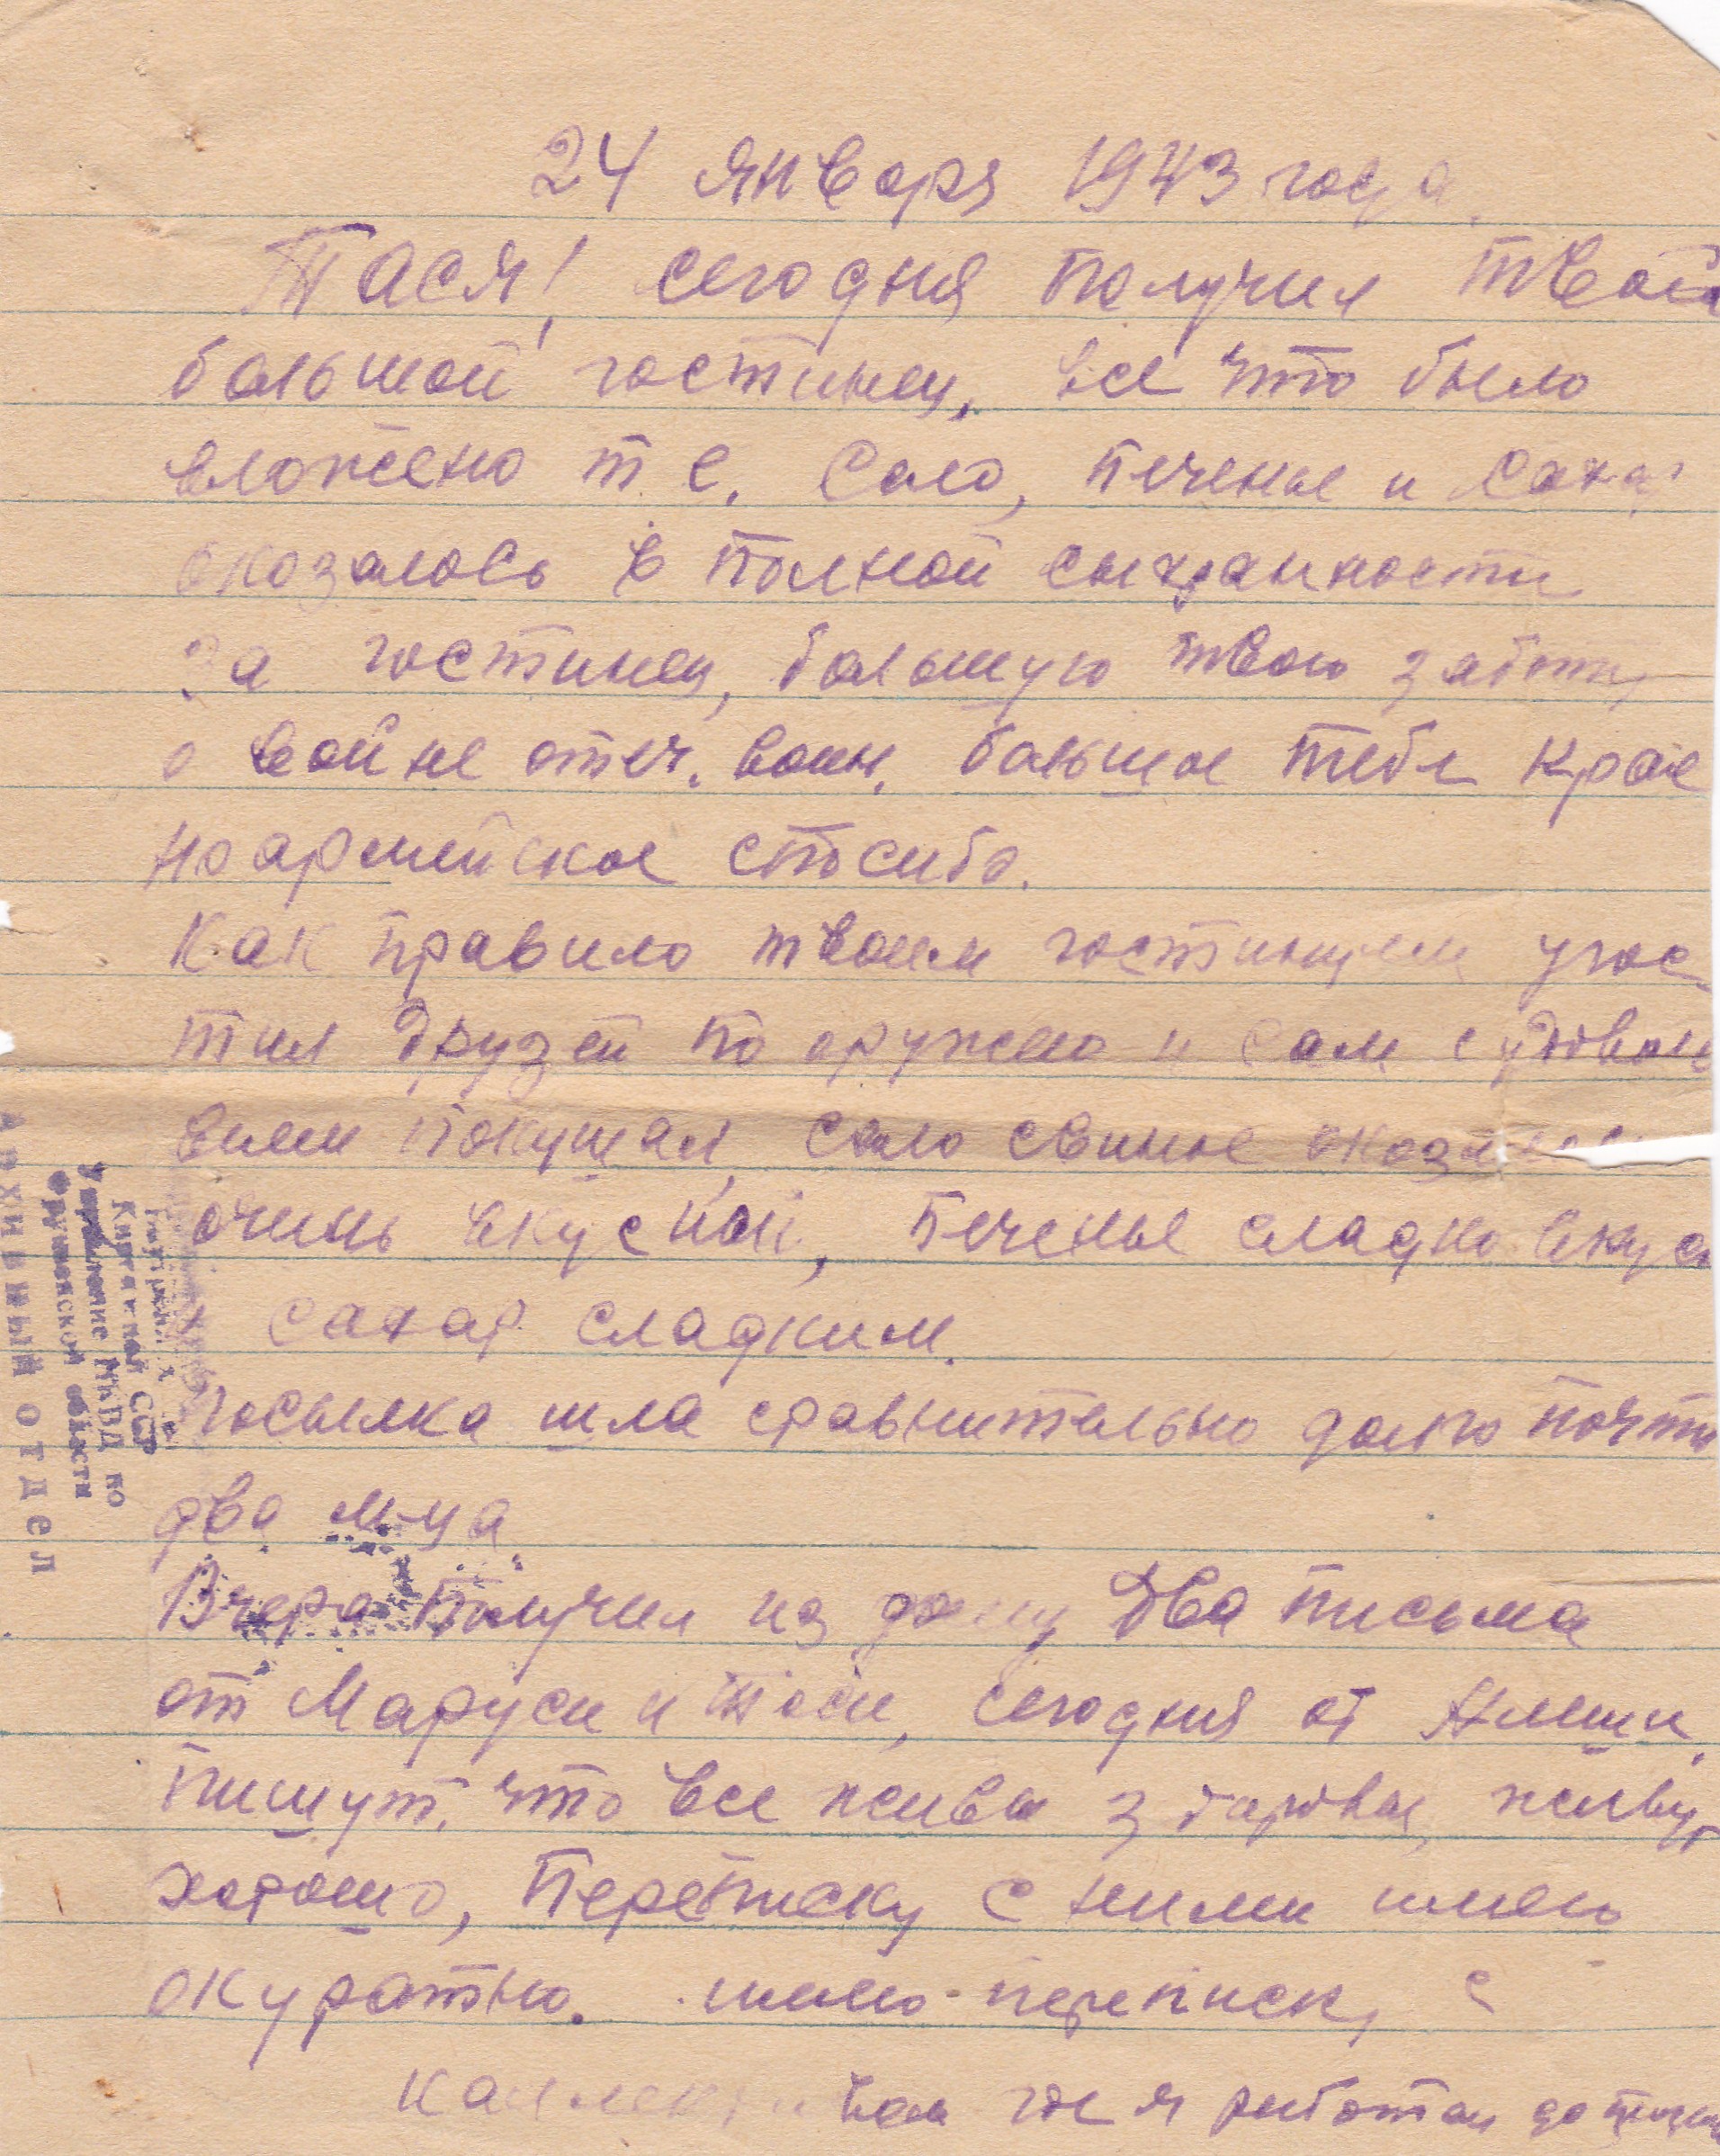 24 января 1943 года.
Тася! сегодня получил твой
большой гостинец, все что было
вложено т е. сало, печенье и сахар
оказалось в полной сыхранности
за гостинец, большую твою заботу
о войне отеч. воин. большое тебе крас
ноармейское спосибо.
Как правило твоим гостинцем угос-
тил друзей по оружию и сам с удовол
вием покушал, сало свиное оказалось
очень вкусной, печенье сладко вкусн
и сахар сладким.
Посылка шла сравнительно долго почти
два м-ца.
Вчера получил из дому два письма
от Маруси и Таси, сегодня от Алеши,
пишут, что все живы здоровы, живут
хорошо, Переписку с ними имею
окуратно. имею переписку с
где я работал до
Киргизской ССР
Управление НКВД по
Фрунзенской области
Архивный отдел